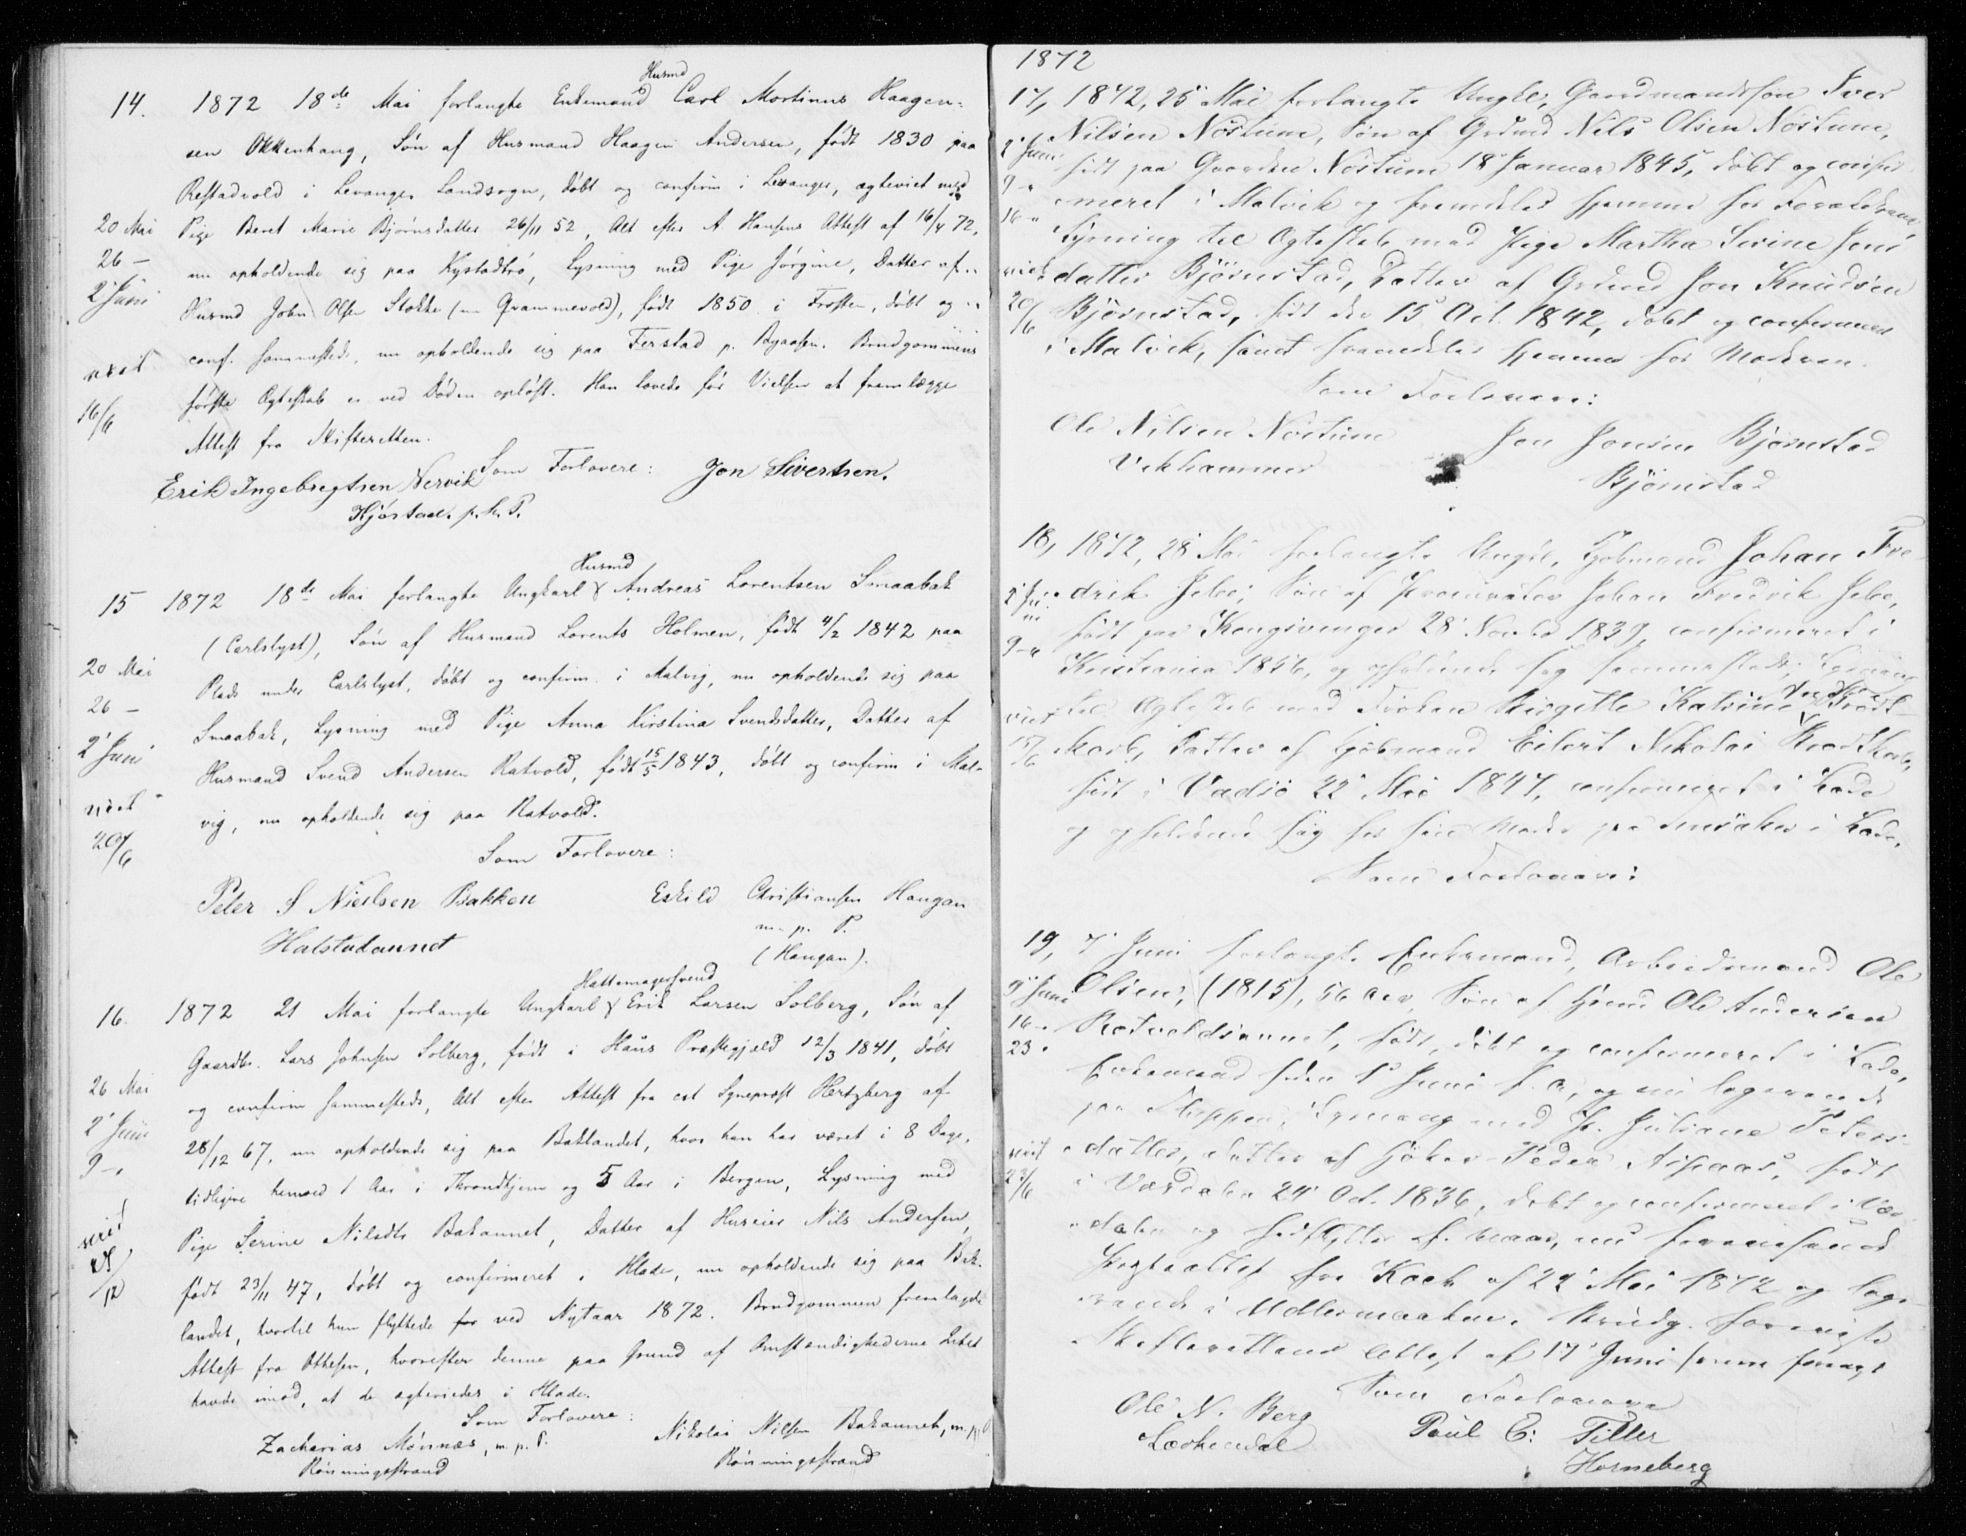 Husmd
14. 1872 18de Mai forlangte Enkemand Carl Martinus Haagen-
sen Okkenhaug, Søn af Husmand Haagen Andersen, født 1830 paa
Restadvold i Levanger Landsogn, døbt og confirm i Levanger, ægteviet med
20 Mai Pige Beret Marie Bjørnsdatter 26/11 52, Alt efter A Hansens Attest af 16/4 72,
26 — nu opholdende sig paa Kystadtrø, Lysning med Pige Jørgine, Datter af
2' Juni Husmd John Olsen Stokke (nu Grammevold), født 1850 i Frosten, døbt og
conf. sammesteds, nu opholdende sig paa Ferstad p. Byaasen. Brudgommens
viet første Ægteskab er ved Døden opløst. Han lovede før Vielsen at fremlægge
16/6 Attest fra Skifteretten.
Som Forlovere:
Erik Ingebregtsen Nervik Jon Sivertsen.
Hjørstad. p. h. P.
Husmd
15 1872 18de Mai forlangte Ungkarl Andreas Lorentsen Smaabak
(Carlslyst), Søn af Husmand Lorents Holmen, født 4/2 1842 paa
20 Mai Plads under Carlslyst, døbt og confirm. i Malvig, nu opholdende sig paa
26 — Smaabak, Lysning med Pige Anna Kirstina Svendsdatter, Datter af
2' Juni Husmand Svend Andersen Ratvold, født 15/5 1843, døbt og confirm i Mal-
viet vig, nu opholdende sig paa Ratvold.
20/6 Som Forlovere:
Peter S Nielsen Bakken Eskild Christiansen Haugan
m. p. P.
Halstadaunet (Haugan).
Hattemagersvend
16. 1872 21 Mai forlangte Ungkarl Erik Larsen Solberg, Søn af
Gaardbr. Lars Johnsen Solberg, født i Haus Præstegjæld 12/3 1841, døbt
26 Mai og confirm sammesteds, Alt efter Attest fra cst Sgneprost Hertzberg af
2' Juni 28/12 67, nu opholdende sig paa Baklandet, hvor han har været i 8 Dage,
9 — tidligere henved 1 Aar i Throndhjem og 5 Aar i Bergen, Lysning med
viet Pige Serine Nilsdtr Bakaunet, Datter af Huseier Nils Andersen,
/12 født 23/11 47, døbt og confirmeret i Hlade, nu opholdende sig paa Bak-
landet, hvortil hun flyttede for ved Nytaar 1872. Brudgommen fremlagde
Attest fra Ottesen, hvorefter denne paa Grund af Omstændighederne Intet
havde imod, at de ægtevies i Hlade.
Som Forlovere:
Zacharias Mønnæs, m. p. P. Nikolai Nilsen Bakaunet, m. p. P
Rønningsstrand Rønningsstrand
1872
17, 1872, 25' Mai forlangte Ungkl, Gaardmandssøn Iver
Nilsen Nøstum, Søn af Grdmd Nils Olsen Nøstum,
2' Juni født paa Gaarden Nøstum 18' Januar 1845, døbt og confir-
9 — meret i Malvik og fremdeles hjemme hos Forældrene
16 — Lysning til Ægteskab med Pige Martha Sirine Jons-
viet datter Bjørnstad, Datter af Grdmd Jon Knudsen
20/6 Bjørnstad, født den 15' Oct. 1842, døbt og confirmeret
i Malvik, samt fremdeles hjemme hos Moderen.
Som Forlovere:
Ole Nilsen Nøstum Jon Jonsen Bjørnstad
Vikhammer Bjørnstad
18, 1872, 28' Mai forlangte Ungkl, Kjøbmand Johan Fre-
2' Ju- drik Jelse, Søn af Procurator Johan Fredrik Jelse,
ni født paa Kongsvinger 28' Novbr 1839, confirmeret i
9 — Kristiania 1856, og opholdende sig sammesteds, Lysning
viet til Ægteskab med Frøken Birgitte Katrine Brodt-
15/6 korb, Datter af Kjøbmand Eilert Nikolai Brodtkorb,
født i Vadsø 22' Mai 1847, confirmeret i Lade
og opholdende sig hos sin Moder paa i Lade.
Som Forlovere:
19, 7' Juni forlangte Enkemand, Arbeidsmand Ole
9' Juni Olsen, (1815), 56 Aar, Søn af Hsmd Ole Andersen
16 — Ratvoldsaunet, født, døbt og confirmeret i Lade,
23 — Enkemand siden 1' Juni f. A., og nu logerende
paa Steppen, Lysning med P. Juliane Peters-
viet datter, Datter af Peder Aspaas, født
23/6 i Værdalen 24' Oct. 1836, døbt og confirmeret i Vær-
dalen og nu foreviisende
fra Koch af 22' Mai 1872 og loge-
rende i Ullermaalen. Brudg. foreviste
Skifterettens Attest af 17' Juni
Som Forlovere
Ole N. Berg Paul E: Tiller
Lerkendal Horneberg